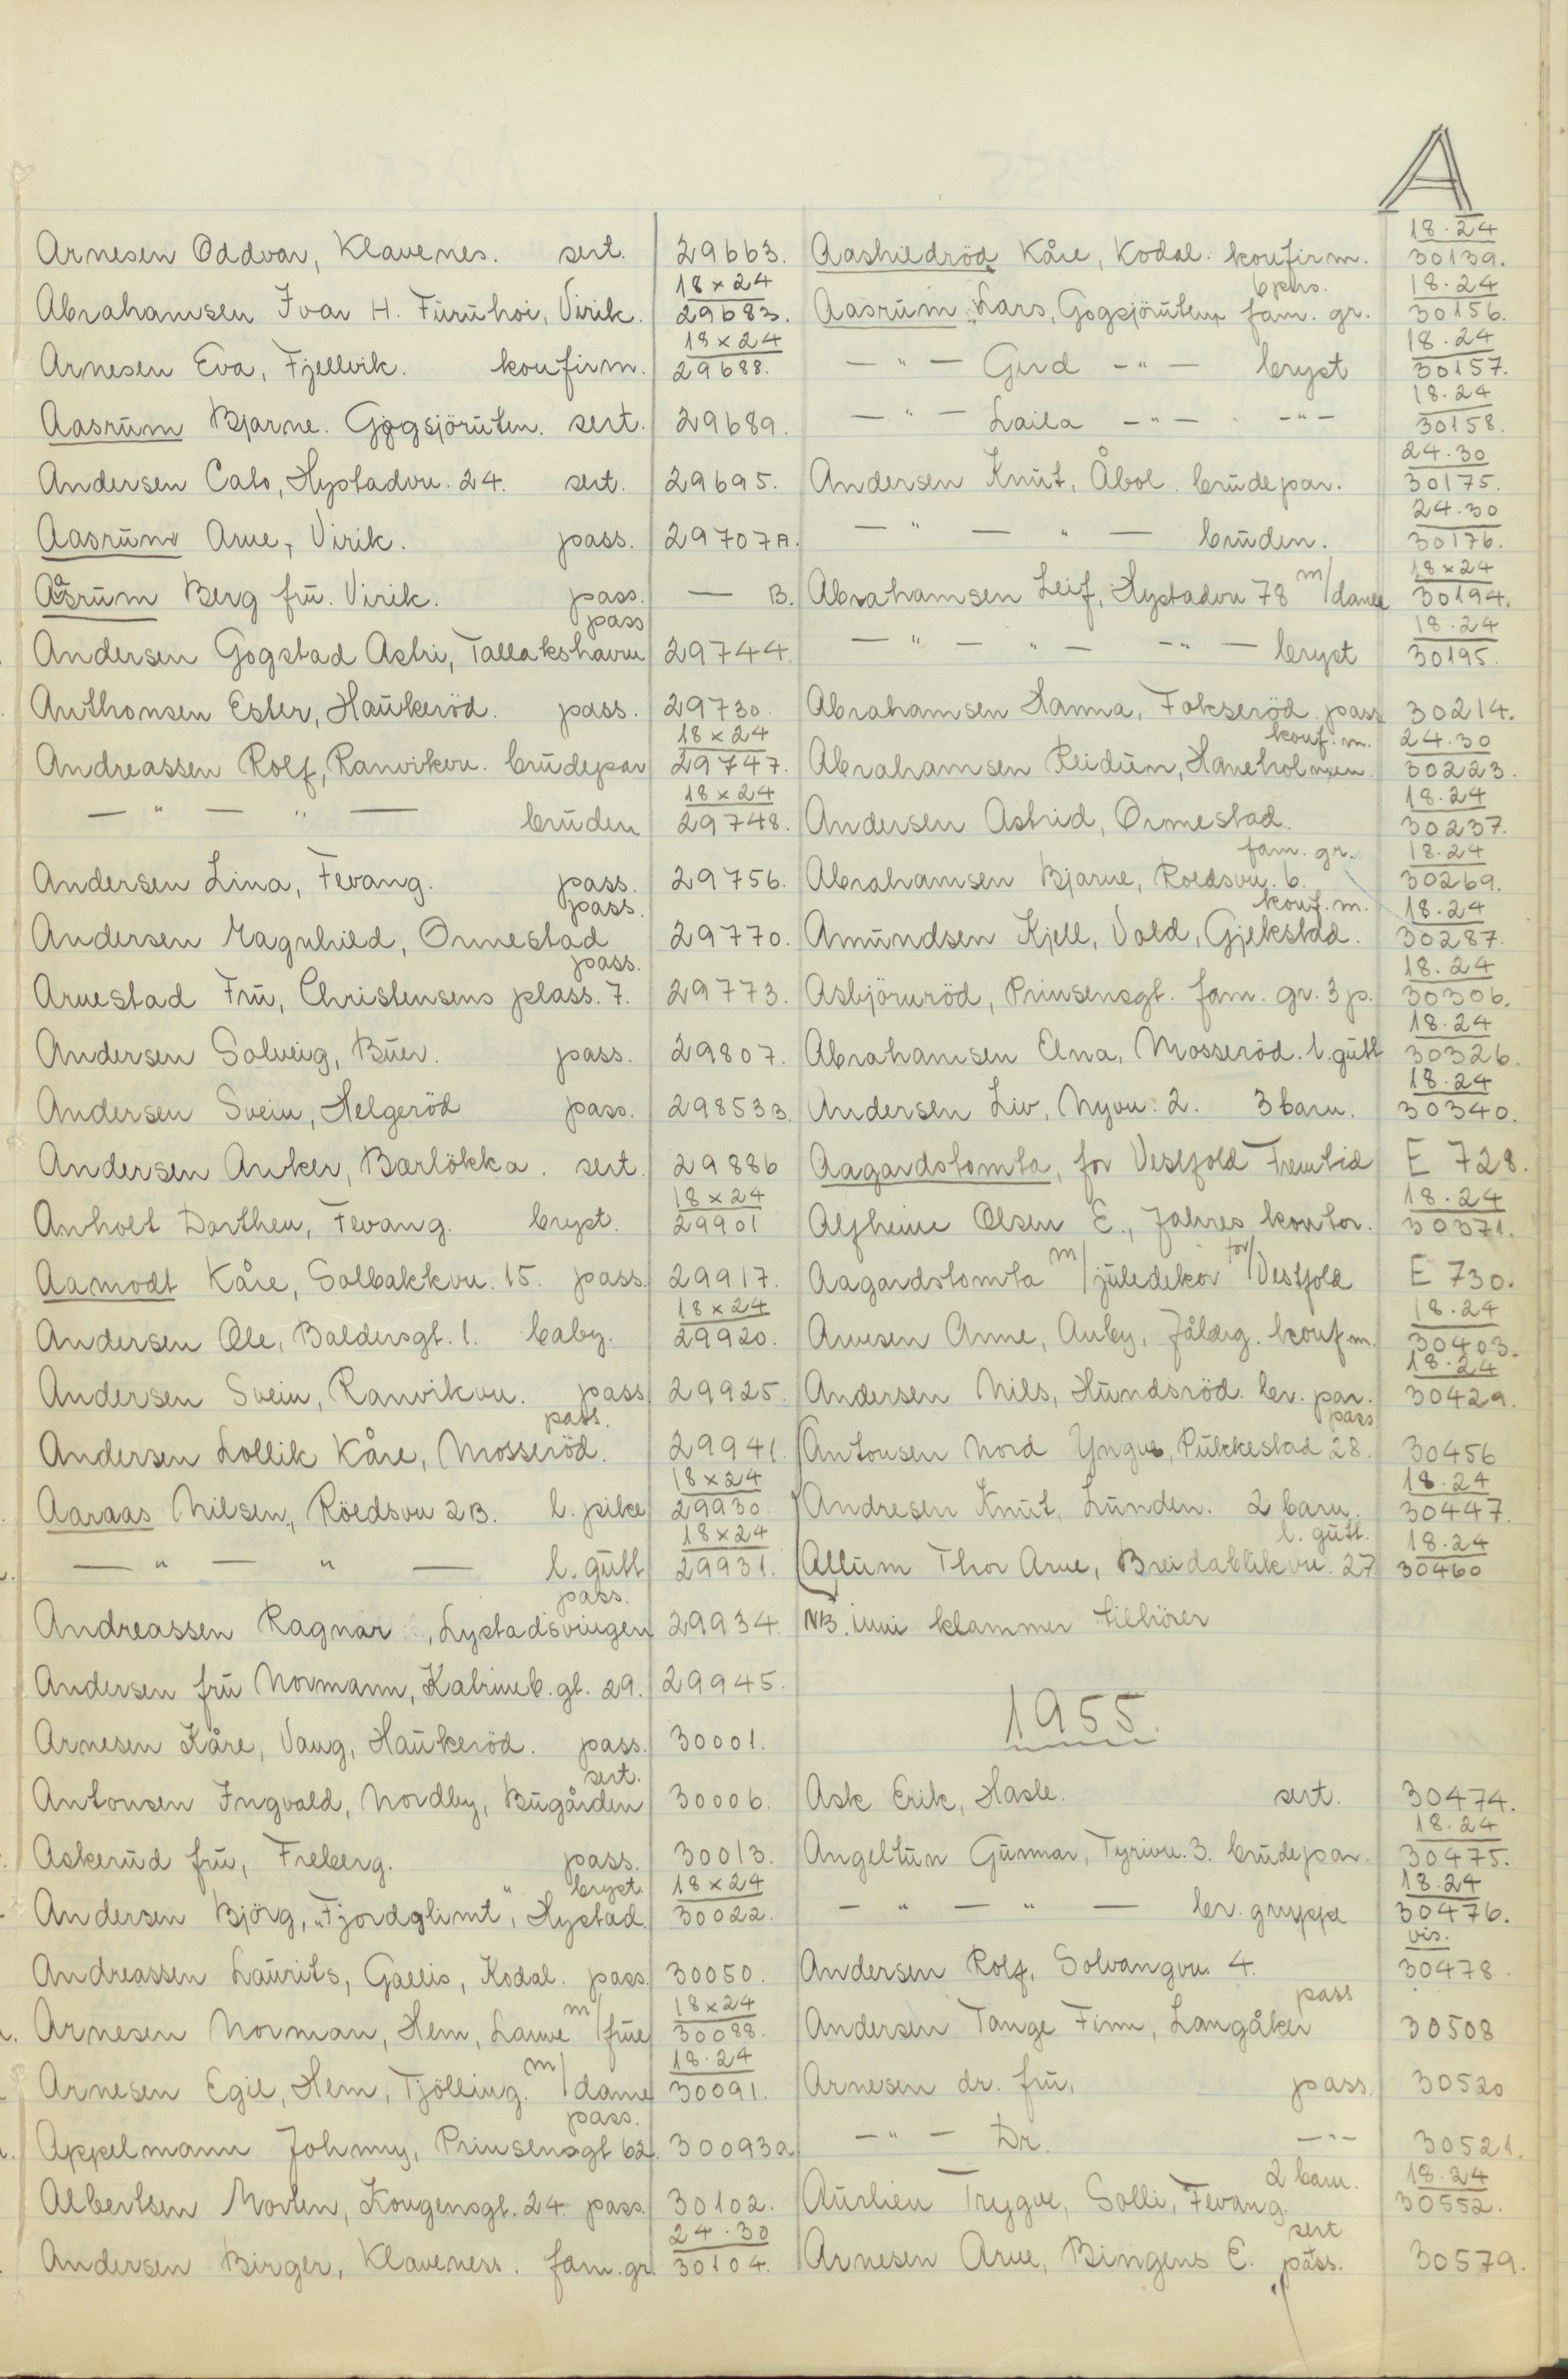 A
Arnesen Oddvar, Klavenes. sert. 29663.
Abrahamsen Ivar H. Furuhoi, Virik. 18 x 24 29683.
Arnesen Eva, Fjellvik. konfirm. 18 x 24 29688.
Aasrum Bjarne. Gogsjöruten. sert. 29689.
Andersen Cato, Hystadvn. 24. sert. 29695.
Aasrum Arne, Virik. pass. 29707A.
Aasrum Berg fru. Virik. pass. — B.
Andersen Gogstad Astri, Tallakshavn pass 29744.
Anthonsen Ester, Haukeröd. pass. 29730.
Andreassen Rolf, Ranvikvn. brudepar 18 x 24 29747.
— " — " — bruden 18 x 24 29748.
Andersen Lina, Fevang. pass. 29756.
Andersen Ragnhild, Ormestad pass. 29770.
Arnestad Fru, Christensens plass. 7. pass. 29773.
Andersen Solveig, Buer. pass. 29807.
Andersen Svein, Helgeröd pass. 29853B.
Andersen Anker, Barlökka. sert. 29886
Anholt Dorthea, Fevang. bryst. 18 x 24 29901
Aamodt Kåre, Solbakkvn. 15. pass. 29917.
Andersen Ole, Baldersgt. 1. baby. 18 x 24 29920.
Andersen Svein, Ranvikvn. pass 29925.
Andersen Lollik Kåre, Mosseröd. pass. 29941.
Aaraas Nilsen, Röedsvn 2B. l. pike 18 x 24 29930.
— " — " — l. gutt 18 x 24 29931.
Andreassen Ragnar, Lystadsvingen pass. 29934.
Andersen fru Normann, Katrineb. gt. 29. 29945.
Arnesen Kåre, Vang, Haukeröd. pass. 30001.
Antonsen Ingvald, Nordby, Bugården sert. 30006.
Askerud fru, Freberg. pass. 30013.
Andersen Björg, "Fjordglimt", Hystad. bryst. 18 x 24 30022.
Andreassen Laurits, Gallis, Kodal. pass. 30050.
Arnesen Norman, Hem, Lauve m/frue 18 x 24 30088.
Arnesen Egil, Hem, Tjölling. m/dame 18·24 30091.
Appelmann Johnny, Prinsensgt 62. pass. 30093a
Albertsen Morten, Kongensgt. 24. pass. 30102.
Andersen Birger, Klaveness. fam. gr. 24·30 30104.
Aashildröd Kåre, Kodal. konfirm. 18·24 30139.
Aasrum Lars, Gogsjöruten fam. gr. 6 pers. 18·24 30156.
— " — Gerd — " — bryst 18·24 30157.
— " — Laila — " — — " — 18·24 30158.
Andersen Knut, Åbol. brudepar. 24·30 30175.
— " — " — bruden. 24·30 30176.
Abrahamsen Leif, Hystadvn 78 m/dame 18 x 24 30194.
— " — " — — " — bryst 18·24 30195.
Abrahamsen Hanna, Fokseröd. pass 30214.
Abrahamsen Reidun, Haneholmen. konf. m. 24·30 30223.
Andersen Astrid, Ormestad. 18·24 30237.
Abrahamsen Bjarne, Roedsvn. 6. fam. gr. 18·24 30269.
Amundsen Kjell, Vold, Gjekstad. konf. m. 18·24 30287.
Asbjörnröd, Prinsensgt. fam. gr. 3 p. 18·24 30306.
Abrahamsen Elna, Mosseröd. l. gutt 18·24 30326.
Andersen Liv, Nyvn. 2. 3 barn. 18·24 30340.
Aagardstomta, for Vestfold Fremtid E 728.
Alfheim Olsen E., Jahres kontor. 18·24 30371.
Aagardstomta m/juledekor for/Vestfold E 730.
Arnesen Anne, Auby, Jåberg. konf m. 18·24 30403.
Andersen Nils, Hundsröd. br. par. 18·24 30429.
Antonsen Nord Yngve, Pukkestad 28. pass 30456
Andresen Knut, Lunden. 2 barn. 18·24 30447.
Allum Thor Arne, Breidablikvn. 27 l. gutt. 18·24 30460
NB. inni klammer tilhörer
1955.
Ask Erik, Hasle. sert. 30474.
Angeltun Gunnar, Tyrivn. 3. brudepar. 18·24 30475.
— " — " — br. gruppe 18·24 30476.
Andersen Rolf, Solvangvn. 4. vis. 30478.
Andersen Tange Finn, Langåker pass 30508
Arnesen dr. fru, pass. 30520
— " — Dr. — " — 30521.
Aurlien Trygve, Solli, Fevang. 2 barn. 18·24 30552.
Arnesen Arne, Bingens E. sert pass. 30579.